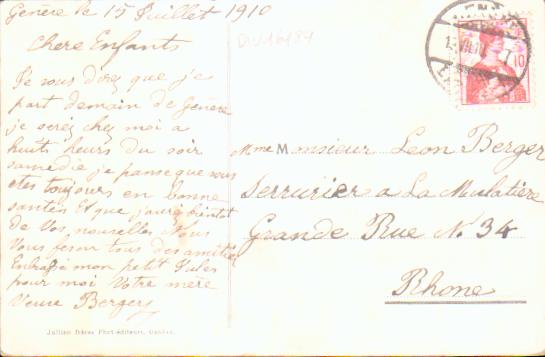 Genève le 15 Juillet 1910
Chere Enfants
Je vous direz que j'es
part demain de Genève
je serez chez moi a
huit heurs du soir
samedie je panse que vous
etes toujours en bonne
santés Et que j'aurez bientot
de vos nouvelles Nous
Vous feson tous des amitier
Enbrasé mon petit Jules
pour moi Votre mère
Veuve Berger
Mme Monsieur Leon Berger
Serrurier a La Mulatière
Grande Rue N. 34
Rhone
Jullien frères Phot-éditeurs, Genève.
10